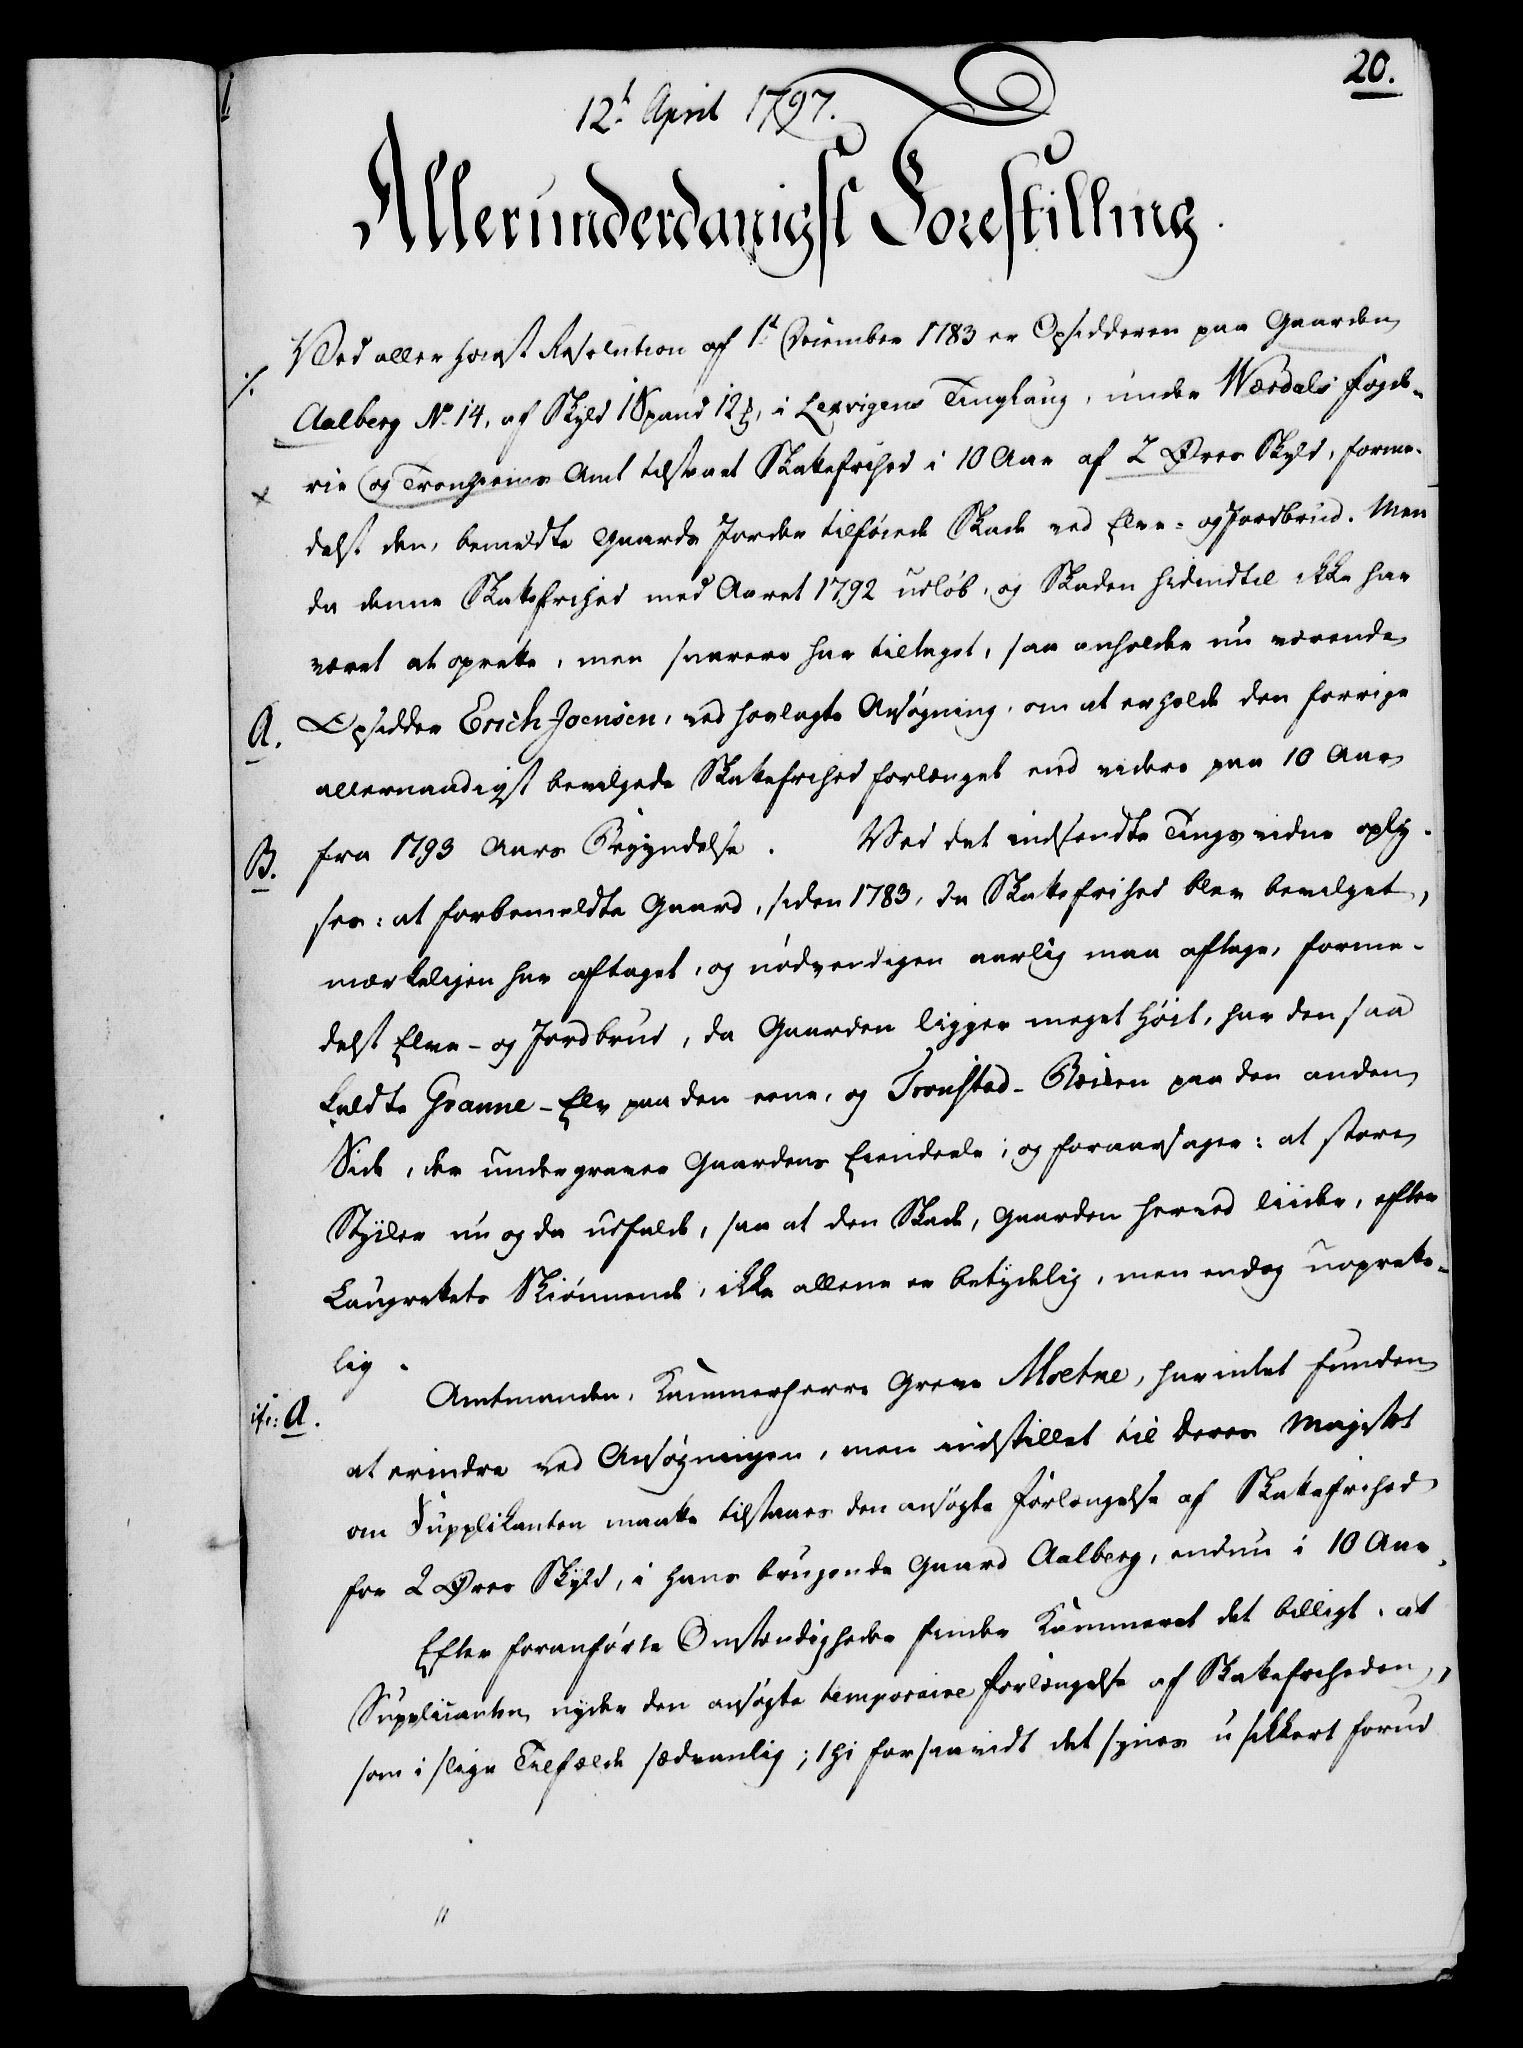 20.
12t April 1797.
Allerunderdanigst Forestilling.
Ved allerhøiest Resolution af 1t December 1783 er Opsidderen paa Gaarden
Aalberg No 14, af Skyld 1 Spand 12 , i Lexvigens Tinglaug, under Wærdals Foge-
rie og Tronhiems Amt tilstaaet Skatefrihed i 10 Aar af 2 Øres Skyld, forme-
delst den, bemeldte Gaards Jorder tilføiede Skade ved Elve- og Jordbrud. Men
da denne Skatefrihed med Aaret 1792 udløb, og Skaden hidindtil ikke har
været at oprette, men snarere har tiltaget, saa anholder nu værende
A. Opsidder Erich Joensen, ved hoslagte Ansøgning, om at erholde den forrige
allernaadigst bevilgede Skatefrihed forlænget end videre paa 10 Aar
B. fra 1793 Aars Begyndelse. Ved det indsendte Tingsvidne oply-
ses: at forbemeldte Gaard, siden 1783, da Skatefrihed blev bevilget,
mærkeligen har aftaget, og nødvendigen aarlig maa aftage, forme-
delst Elve- og Jordbrud, da Gaarden ligger meget høit, har den saa
kaldte Granne-Elv paa den eene, og Tronstad-Bækken paa den anden
Side, der undergraver Gaardens Eiendeele; og foraarsager: at store
Stykker nu og da udfalde, saa at den Skade, Gaarden herved liider, efter
Laugrettets Skiønnende, ikke allene er betydelig, men endog uoprette-
lig.
if: A. Amtmanden, Kammerherre Greve Moltke, har intet funden
at erindre ved Ansøgningen, men indstillet til Deres Majestet
om Supplikanten maatte tilstaaes den ansøgte Forlængelse af Skatefrihed
for 2 Øres Skyld, i hans brugende Gaard Aalberg, endnu i 10 Aar.
Efter foranførte Omstændigheder finder Kammeret det billigt, at
Supplicanten nyder den ansøgte temporaire Forlængelse af Skatefriheden,
som i slige Tilfælde sædvanlig; thi forsaavidt det synes usikkert forud